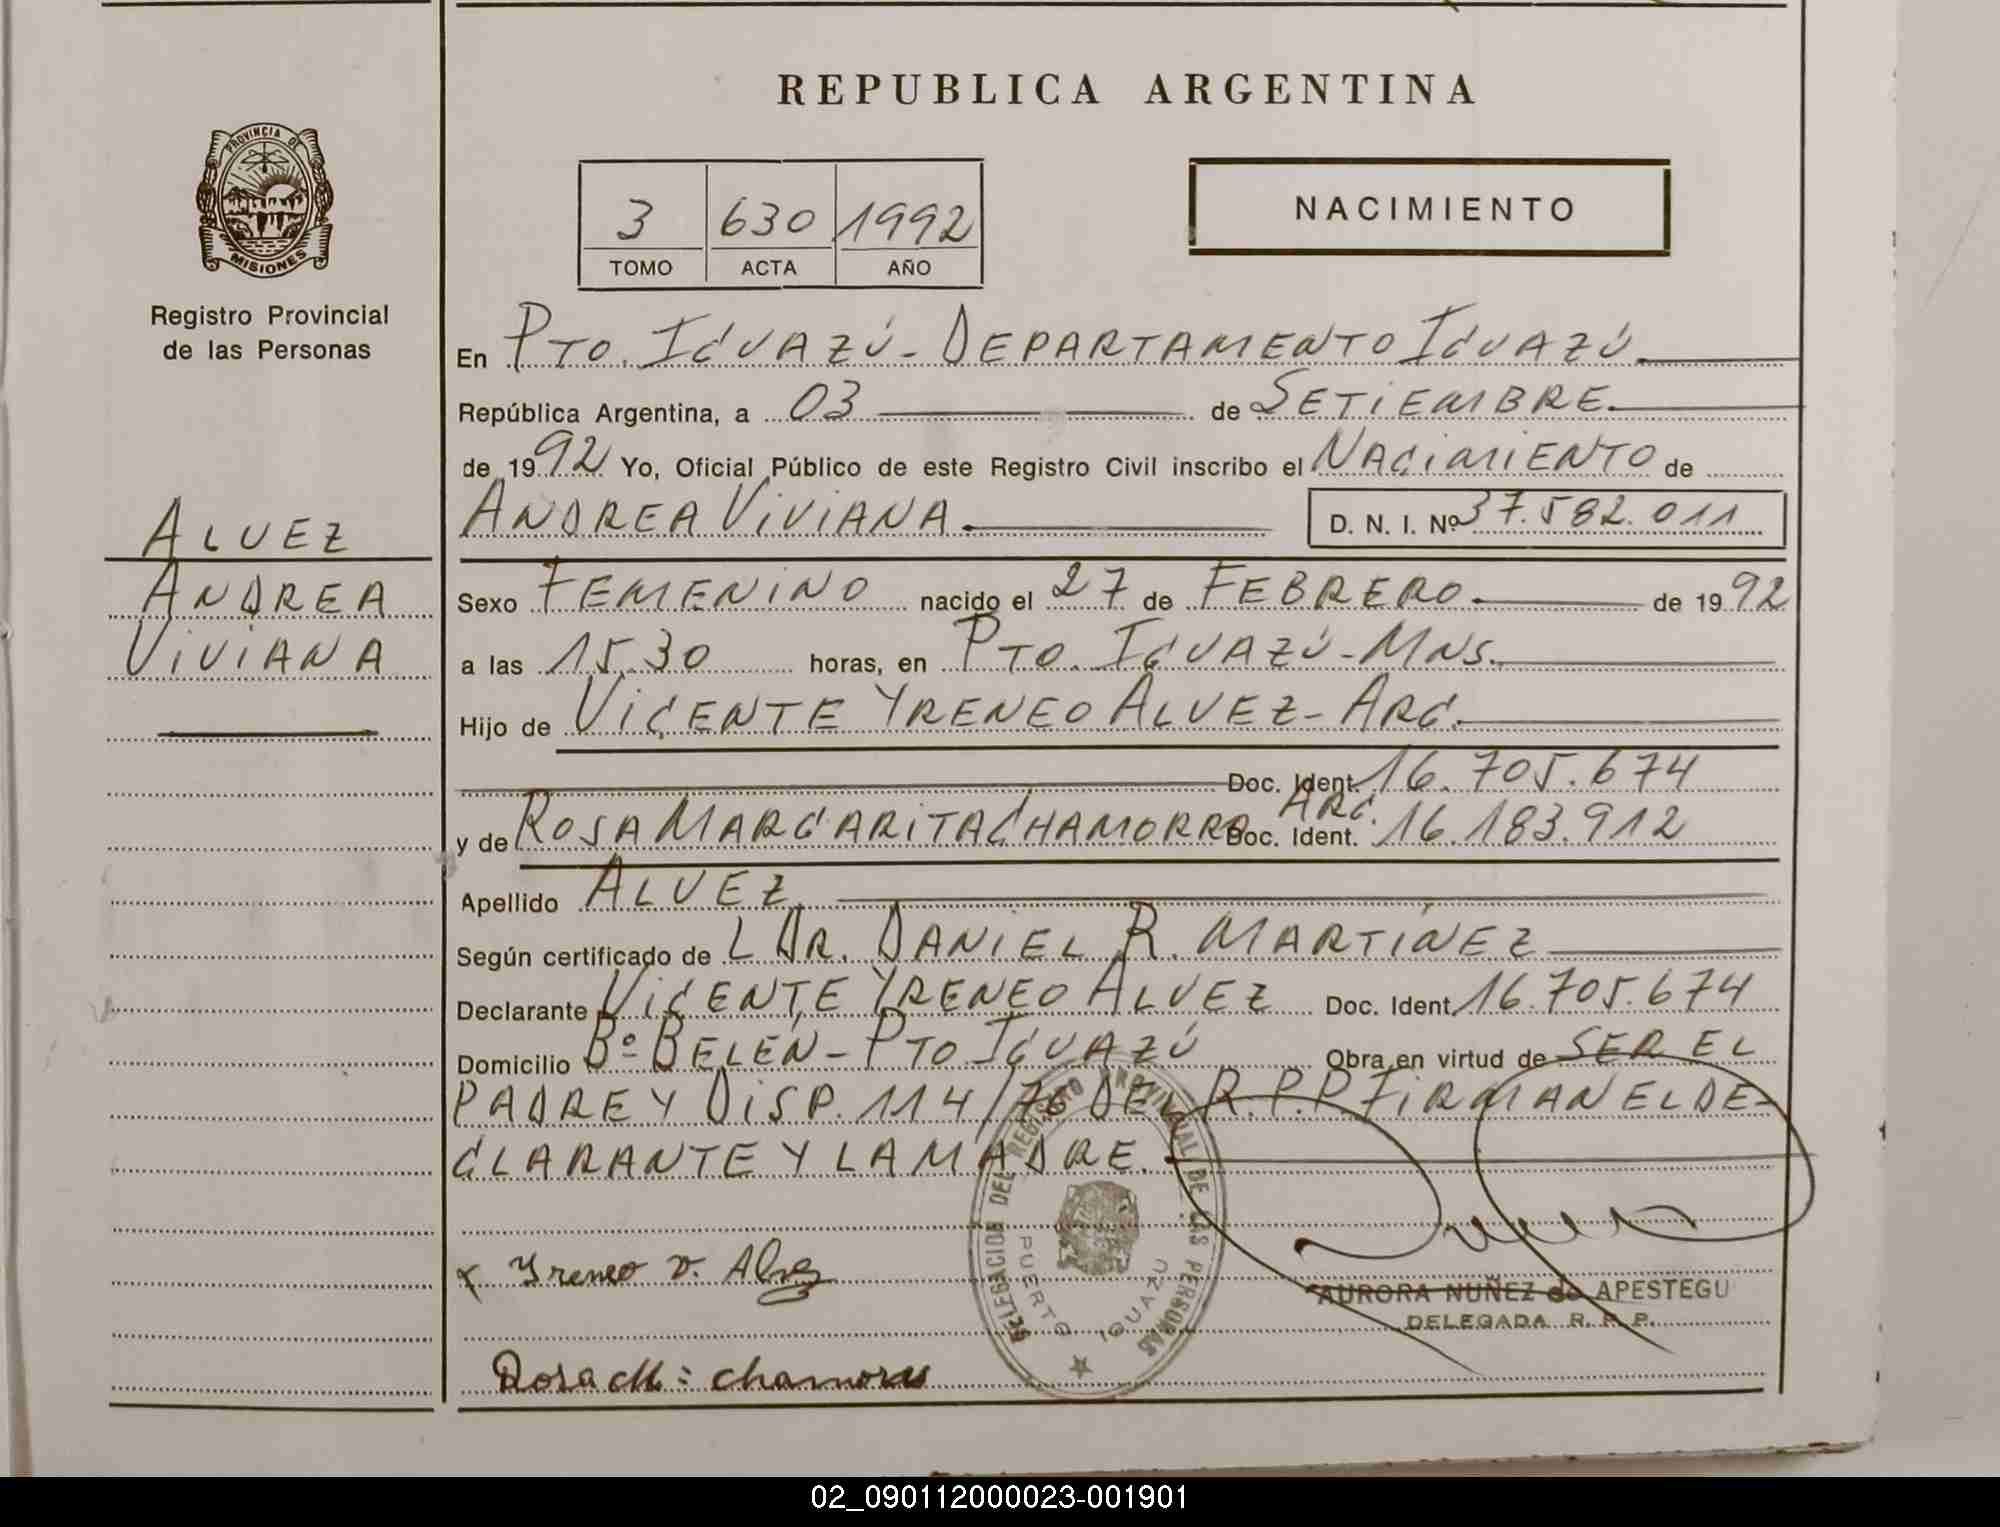 REPUBLICA ARGENTINA
PROVINCIA DE
MISIONES
Registro Provincial
de las Personas
3 630 1992
TOMO ACTA AÑO
NACIMIENTO
En PTO. IGUAZÚ - DEPARTAMENTO IGUAZÚ.
República Argentina, a 03 de SETIEMBRE.
de 1992 Yo, Oficial Público de este Registro Civil inscribo el NACIMIENTO de
ANDREA VIVIANA. D. N. I. Nº 37.582.011
ALVEZ
ANDREA
VIVIANA
Sexo FEMENINO nacido el 27 de FEBRERO. de 1992
a las 15.30 horas, en PTO. IGUAZÚ - MNS.
Hijo de VICENTE YRENEO ALVEZ - ARG.
Doc. Ident. 16.705.674
y de ROSA MARGARITA CHAMORRO ARG. Doc. Ident. 16.183.912
Apellido ALVEZ
Según certificado de L DR. DANIEL R. MARTÍNEZ
Declarante VICENTE YRENEO ALVEZ Doc. Ident. 16.705.674
Domicilio Bº BELÉN - PTO IGUAZÚ Obra en virtud de SER EL
PADRE Y DISP. 114/76 DEL R.P.P FIRMAN EL DE-
CLARANTE Y LA MADRE.
DELEGACION DEL REGISTRO PROVINCIAL DE LAS PERSONAS
PUERTO IGUAZU
Yreneo V. Alvez
AURORA NUÑEZ de APESTEGU
DELEGADA R. P. P.
Rosa M: chamorro
02_090112000023-001901